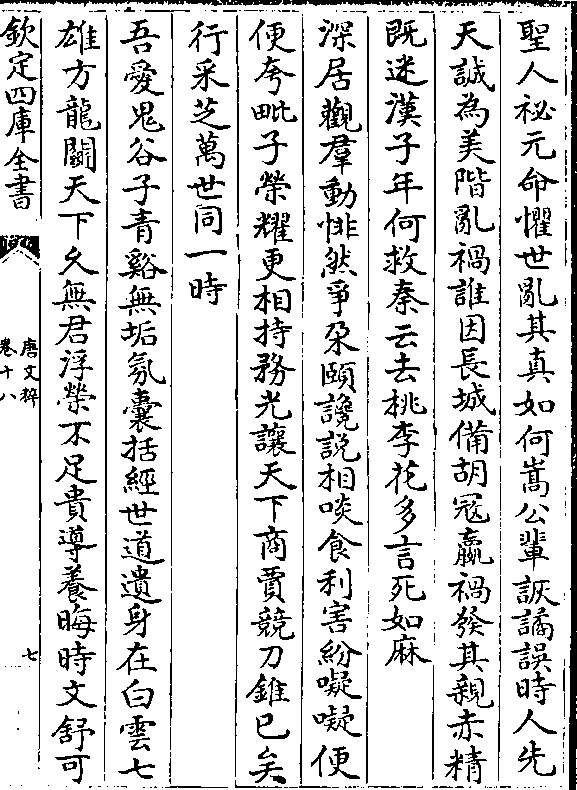 聖人祕元命懼世亂其真如何嵩公輩詼譎誤時人先
天誠為美階亂禍誰因長城備胡冦嬴禍發其親赤精
既迷漢子年何救秦云去桃李花多言死如麻
深居觀羣動悱然爭朶頤讒説相啖食利害紛㘈㘈便
便夸毗子榮耀更相持務光讓天下商賈競刀錐已矣
行采芝萬世同一時
吾愛鬼谷子青谿無垢氛囊括經世道遺身在白雲七
雄方龍鬭天下久無君浮榮不足貴導養晦時文舒可
欽定四庫全書
唐文粹
卷十八
七